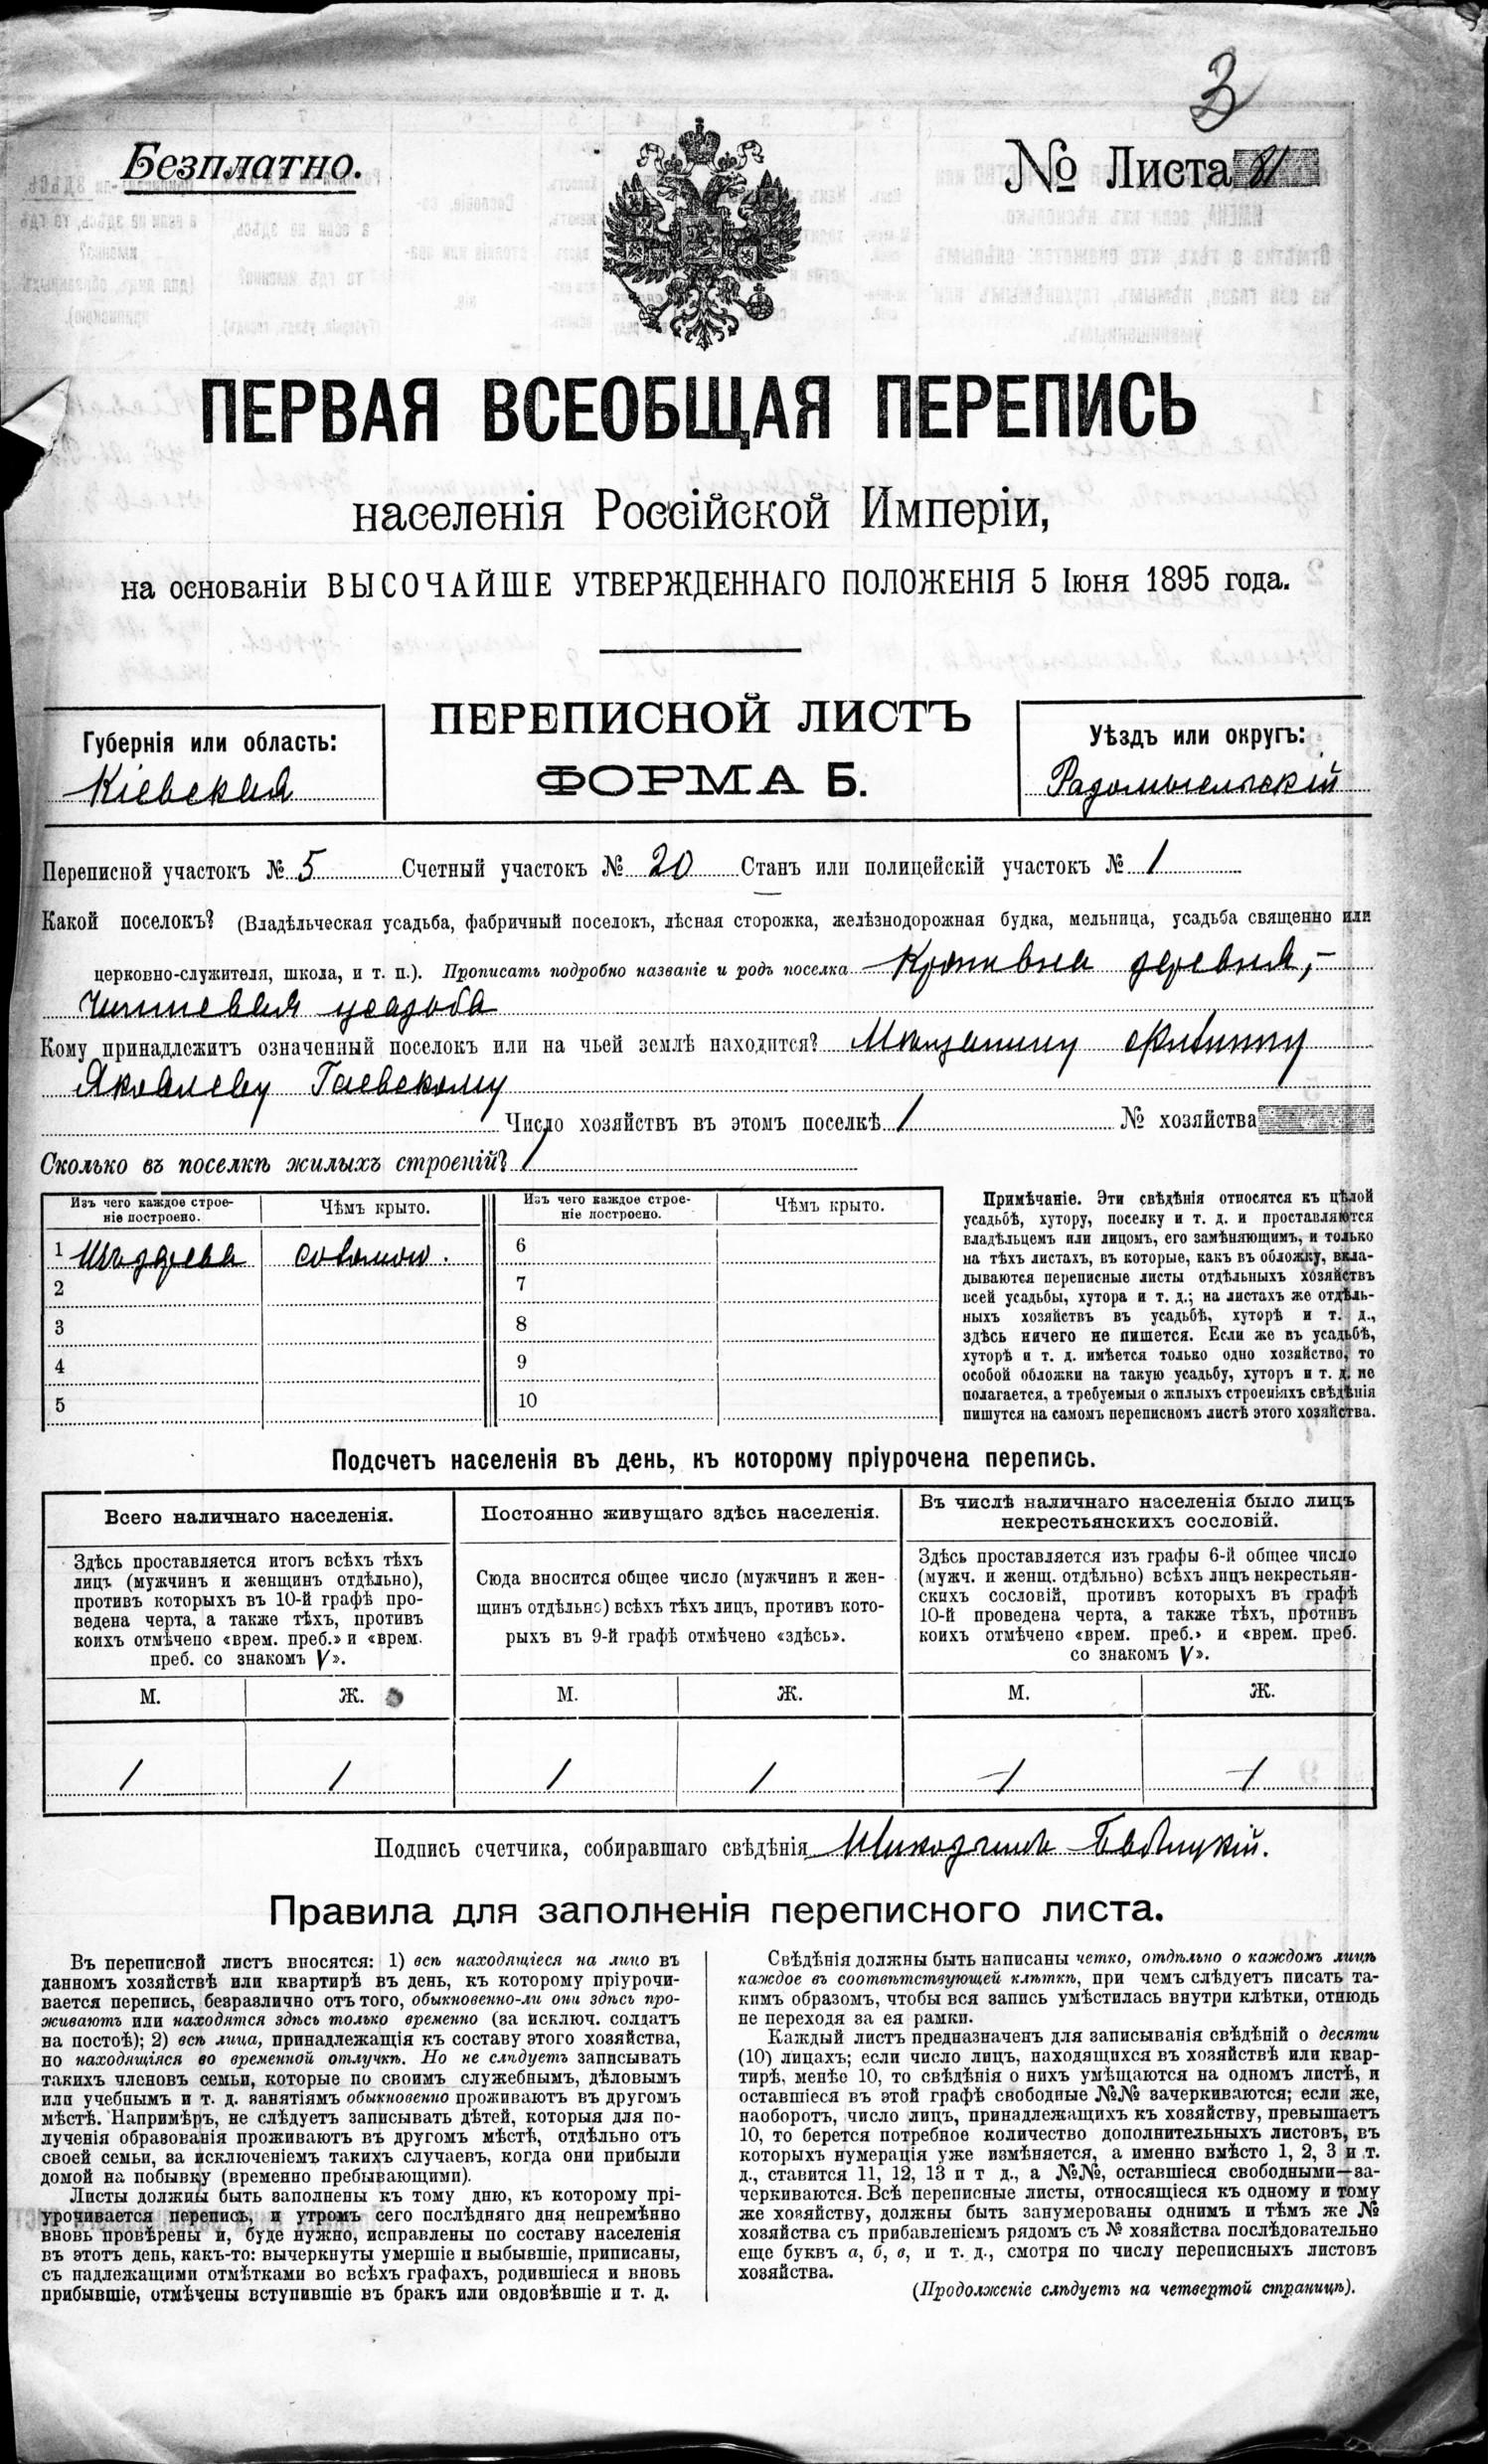 3
Безплатно.
№ Листа 21
ПЕРВАЯ ВСЕОБЩАЯ ПЕРЕПИСЬ
населенія Россійской Имперіи,
на основаніи ВЫСОЧАЙШЕ УТВЕРЖДЕННАГО ПОЛОЖЕНІЯ 5 Іюня 1895 года.
ПЕРЕПИСНОЙ ЛИСТЪ
ФОРМА Б.
Губернія или область:
Кіевская
Уѣздъ или округъ:
Радомысльскій
Переписной участокъ № 5 Счетный участокъ № 20 Станъ или полицейскій участокъ № 1
Какой поселокъ? (Владѣльческая усадьба, фабричный поселокъ, лѣсная сторожка, желѣзнодорожная будка, мельница, усадьба священно или
церковно-служителя, школа, и т. п.). Прописать подробно названіе и родъ поселка Кропивна деревня,-
Чиншевая усадьба
Кому принадлежитъ означенный поселокъ или на чьей землѣ находится? Мѣщанину
Яковлеву Гаевскому
Число хозяйствъ въ этомъ поселкѣ 1 № хозяйства
Сколько въ поселкѣ жилыхъ строеній? 1
Изъ чего каждое строе-
ніе построено.
Чѣмъ крыто.
Изъ чего каждое строе-
ніе построено.
Чѣмъ крыто.
1 Изъ древа соломою.
2
3
4
5
6
7
8
9
10
Примѣчаніе. Эти свѣдѣнія относятся къ цѣлой
усадьбѣ, хутору, поселку и т. д. и проставляются
владѣльцемъ или лицомъ, его замѣняющимъ, и только
на тѣхъ листахъ, въ которые, какъ въ обложку, вкла-
дываются переписные листы отдѣльныхъ хозяйствъ
всей усадьбы, хутора и т. д.; на листахъ же отдѣль-
ныхъ хозяйствъ въ усадьбѣ, хуторѣ и т. д.,
здѣсь ничего не пишется. Если же въ усадьбѣ,
хуторѣ и т. д. имѣется только одно хозяйство, то
особой обложки на такую усадьбу, хуторъ и т. д. не
полагается, а требуемыя о жилыхъ строеніяхъ свѣдѣнія
пишутся на самомъ переписномъ листѣ этого хозяйства.
Подсчетъ населенія въ день, къ которому пріурочена перепись.
Всего наличнаго населенія.
Здѣсь проставляется итогъ всѣхъ тѣхъ
лицъ (мужчинъ и женщинъ отдѣльно),
противъ которыхъ въ 10-й графѣ про-
ведена черта, а также тѣхъ, противъ
коихъ отмѣчено «врем. преб.» и «врем.
преб. со знакомъ V».
М. Ж.
1 1
Постоянно живущаго здѣсь населенія.
Сюда вносится общее число (мужчинъ и жен-
щинъ отдѣльно) всѣхъ тѣхъ лицъ, противъ кото-
рыхъ въ 9-й графѣ отмѣчено «здѣсь».
М. Ж.
1 1
Въ числѣ наличнаго населенія было лицъ
некрестьянскихъ сословій.
Здѣсь проставляется изъ графы 6-й общее число
(мужч. и женщ. отдѣльно) всѣхъ лицъ некрестьян-
скихъ сословій, противъ которыхъ въ графѣ
10-й проведена черта, а также тѣхъ, противъ
коихъ отмѣчено «врем. преб.» и «врем. преб.
со знакомъ V».
М. Ж.
1 1
Подпись счетчика, собиравшаго свѣдѣнія
Правила для заполненія переписного листа.
Въ переписной листъ вносятся: 1) всѣ находящіеся на лицо въ
данномъ хозяйствѣ или квартирѣ въ день, къ которому пріурочи-
вается перепись, безразлично отъ того, обыкновенно-ли они здѣсь про-
живаютъ или находятся здѣсь только временно (за исключ. солдатъ
на постоѣ); 2) всѣ лица, принадлежащія къ составу этого хозяйства,
но находящіяся во временной отлучкѣ. Но не слѣдуетъ записывать
такихъ членовъ семьи, которые по своимъ служебнымъ, дѣловымъ
или учебнымъ и т. д. занятіямъ обыкновенно проживаютъ въ другомъ
мѣстѣ. Напримѣръ, не слѣдуетъ записывать дѣтей, которыя для по-
лученія образованія проживаютъ въ другомъ мѣстѣ, отдѣльно отъ
своей семьи, за исключеніемъ такихъ случаевъ, когда они прибыли
домой на побывку (временно пребывающими).
Листы должны быть заполнены къ тому дню, къ которому прі-
урочивается перепись, и утромъ сего послѣдняго дня непремѣнно
вновь провѣрены и, буде нужно, исправлены по составу населенія
въ этотъ день, какъ-то: вычеркнуты умершіе и выбывшіе, приписаны,
съ надлежащими отмѣтками во всѣхъ графахъ, родившіеся и вновь
прибывшіе, отмѣчены вступившіе въ бракъ или овдовѣвшіе и т. д.
Свѣдѣнія должны быть написаны четко, отдѣльно о каждомъ лицѣ
каждое въ соотвѣтствующей клѣткѣ, при чемъ слѣдуетъ писать та-
кимъ образомъ, чтобы вся запись умѣстилась внутри клѣтки, отнюдь
не переходя за ея рамки.
Каждый листъ предназначенъ для записыванія свѣдѣній о десяти
(10) лицахъ; если число лицъ, находящихся въ хозяйствѣ или квар-
тирѣ, менѣе 10, то свѣдѣнія о нихъ умѣщаются на одномъ листѣ, и
оставшіеся въ этой графѣ свободные №№ зачеркиваются; если же,
наоборотъ, число лицъ, принадлежащихъ къ хозяйству, превышаетъ
10, то берется потребное количество дополнительныхъ листовъ, въ
которыхъ нумерація уже измѣняется, а именно вмѣсто 1, 2, 3 и т.
д., ставится 11, 12, 13 и т д., а №№, оставшіеся свободными—за-
черкиваются. Всѣ переписные листы, относящіеся къ одному и тому
же хозяйству, должны быть занумерованы однимъ и тѣмъ же №
хозяйства съ прибавленіемъ рядомъ съ № хозяйства послѣдовательно
еще буквъ а, б, в, и т. д., смотря по числу переписныхъ листовъ
хозяйства.
(Продолженіе слѣдуетъ на четвертой страницѣ).